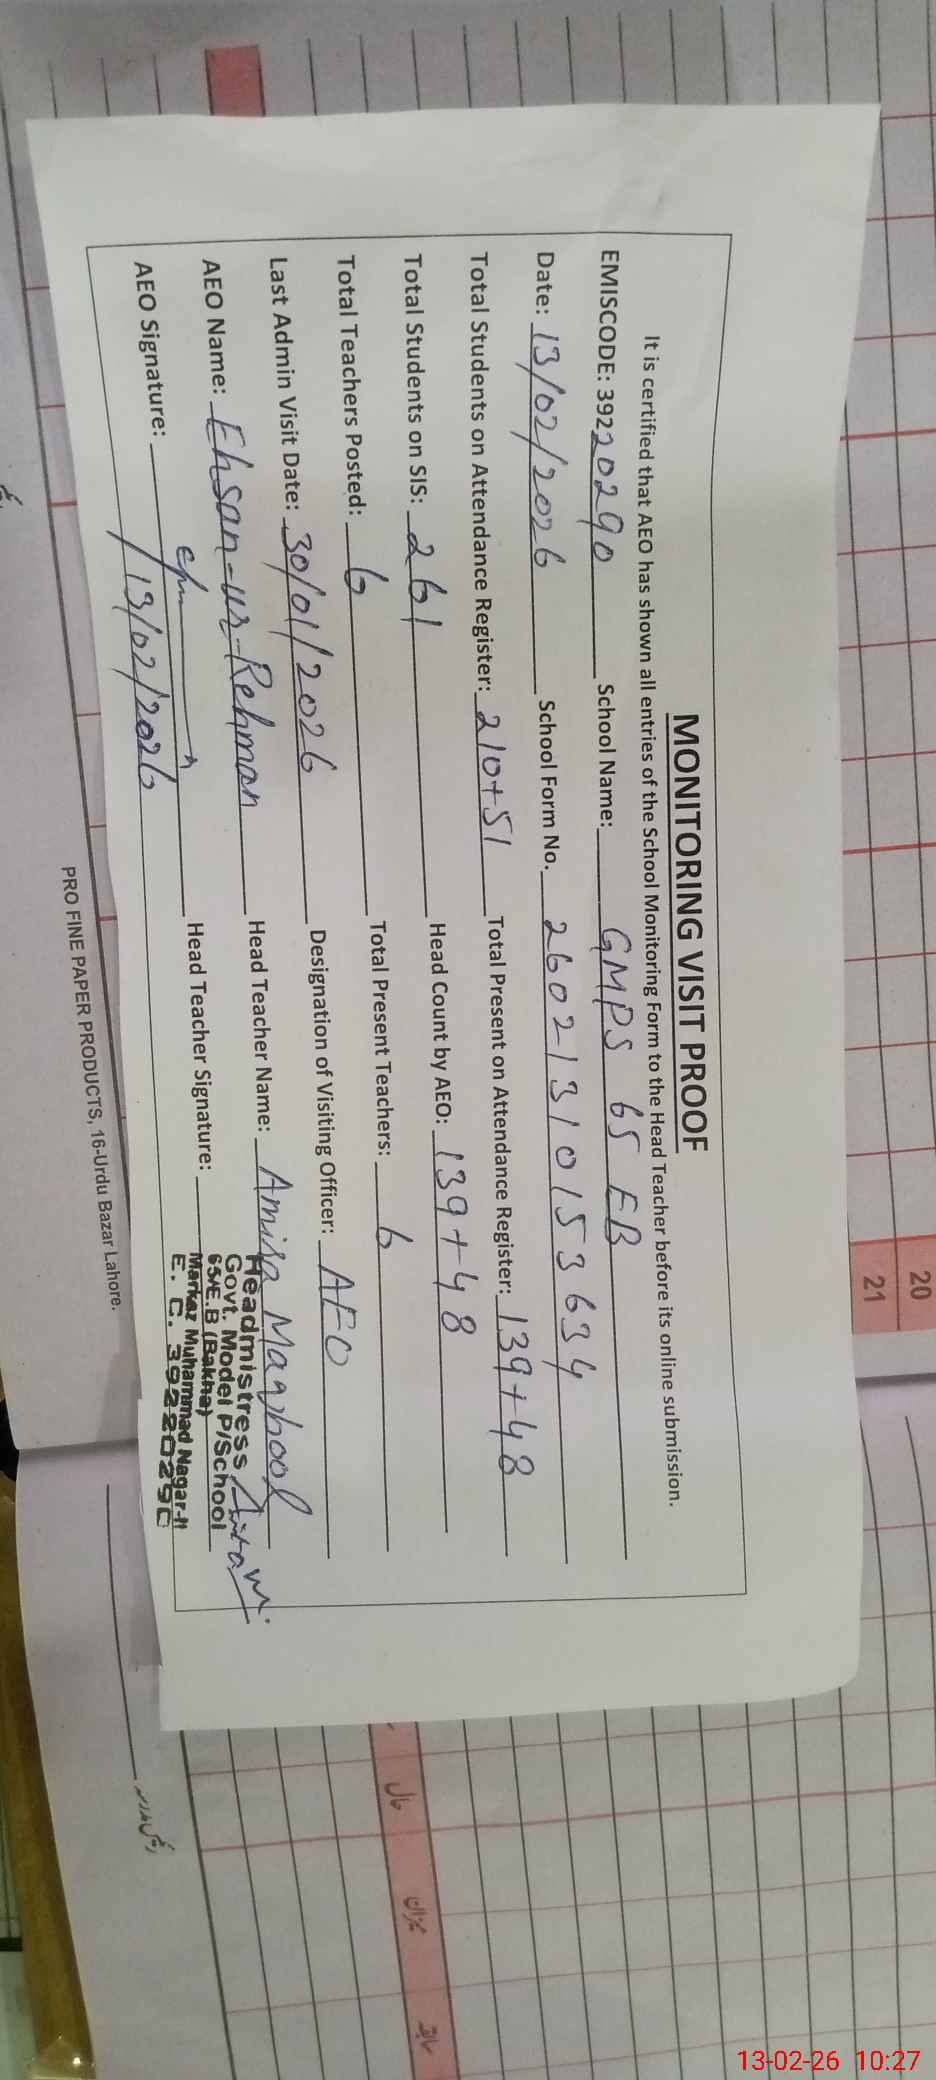 MONITORING VISIT PROOF
It is certified that AEO has shown all entries of the School Monitoring Form to the Head Teacher before its online submission.
EMISCODE: 39220290 School Name: GMPS 65 EB
Date: 13/02/2026 School Form No. 2602131015 3634
Total Students on Attendance Register: 210+51 Total Present on Attendance Register: 139+48
Total Students on SIS: 261 Head Count by AEO: 139+48
Total Teachers Posted: 6 Total Present Teachers: 6
Last Admin Visit Date: 30/01/2026 Designation of Visiting Officer: AEO
AEO Name: Ehsan-ur-Rehman Head Teacher Name: Amira Maqbool
AEO Signature: Head Teacher Signature:
13/02/2026
Headmistress
Govt. Model P/School
65/E.B (Bakha)
Markaz Muhammad Nagar-II
E. C. 39220290
PRO FINE PAPER PRODUCTS, 16-Urdu Bazar Lahore.
20
21
میزان
سابقہ
13-02-26 10:27